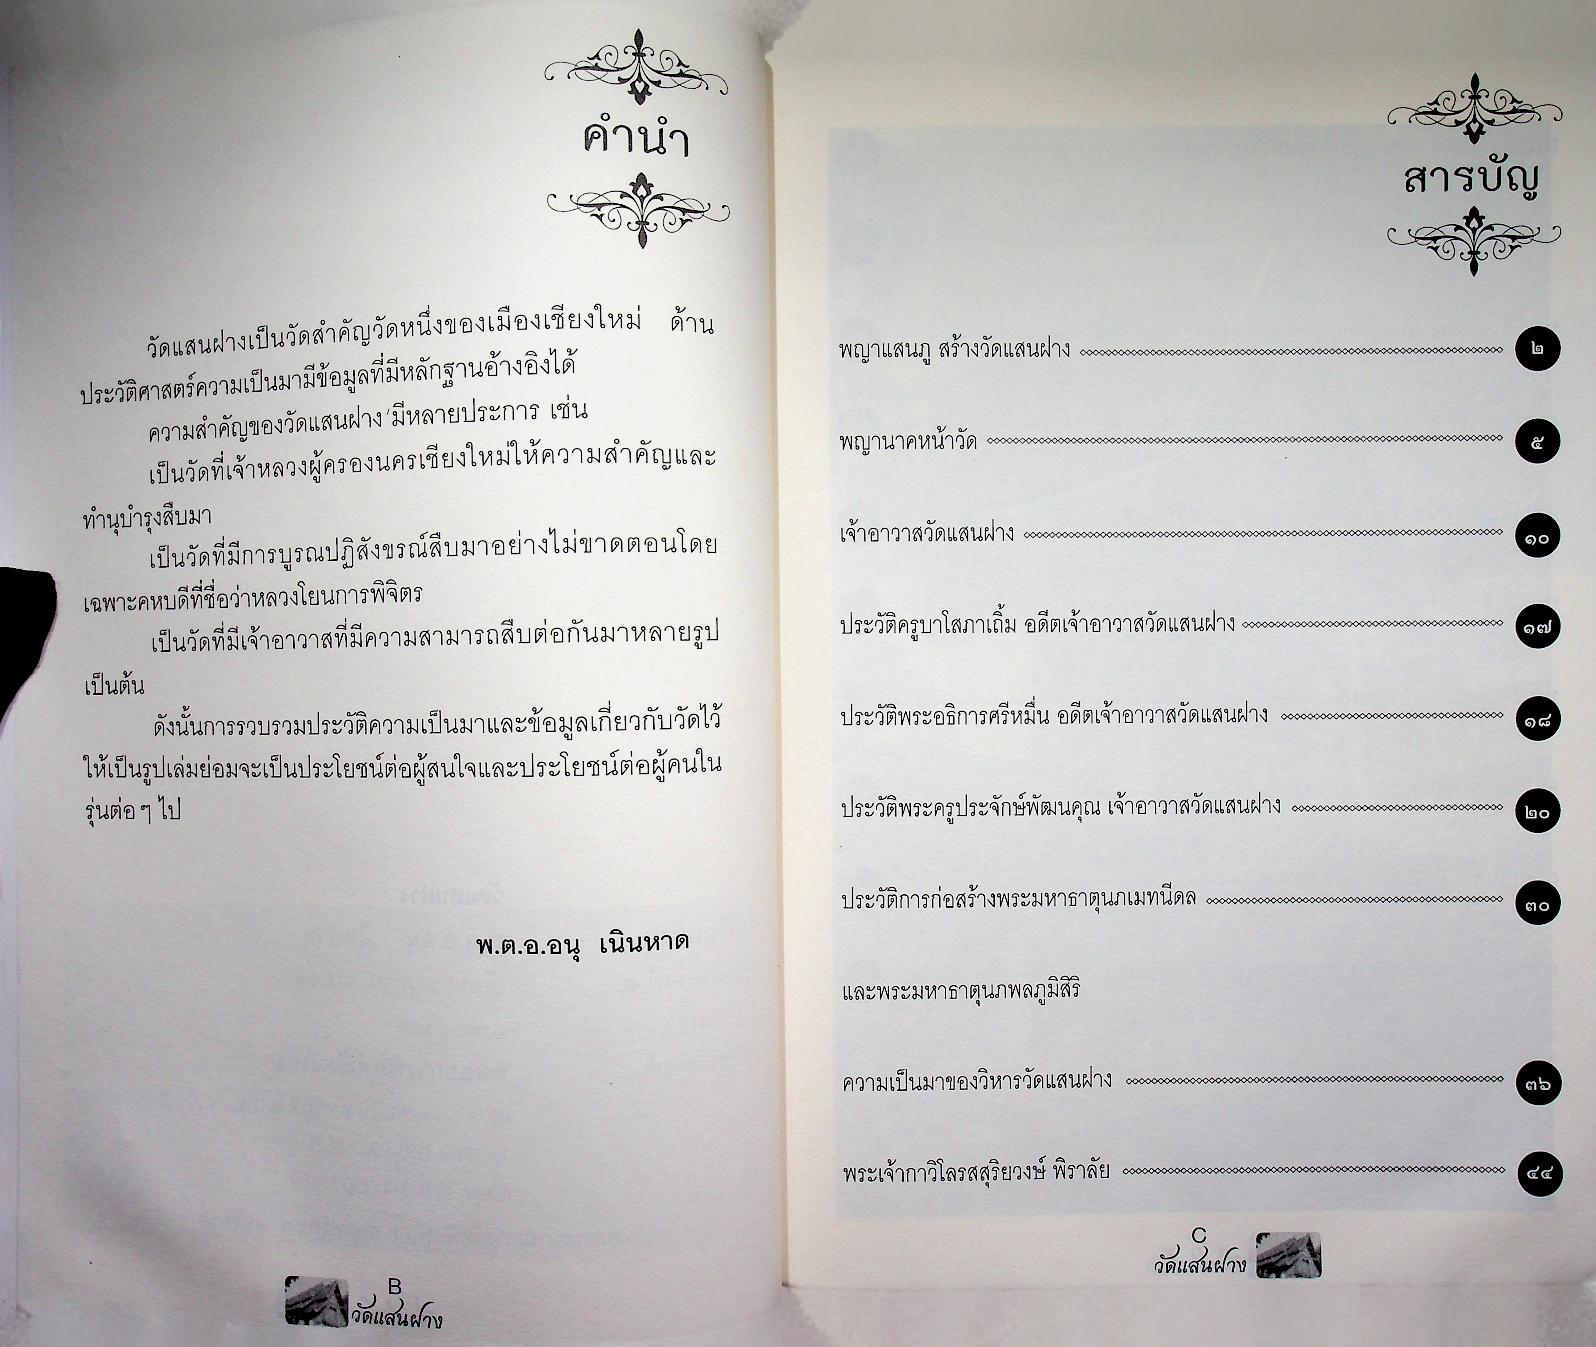 คำนำ
วัดแสนฝางเป็นวัดสำคัญวัดหนึ่งของเมืองเชียงใหม่ ด้าน
ประวัติศาสตร์ความเป็นมามีข้อมูลที่มีหลักฐานอ้างอิงได้
ความสำคัญของวัดแสนฝาง มีหลายประการ เช่น
เป็นวัดที่เจ้าหลวงผู้ครองนครเชียงใหม่ให้ความสำคัญและ
ทำนุบำรุงสืบมา
เป็นวัดที่มีการบูรณปฏิสังขรณ์สืบมาอย่างไม่ขาดตอนโดย
เฉพาะคหบดีที่ชื่อว่าหลวงโยนการพิจิตร
เป็นวัดที่มีเจ้าอาวาสที่มีความสามารถสืบต่อกันมาหลายรูป
เป็นต้น
ดังนั้นการรวบรวมประวัติความเป็นมาและข้อมูลเกี่ยวกับวัดไว้
ให้เป็นรูปเล่มย่อมจะเป็นประโยชน์ต่อผู้สนใจและประโยชน์ต่อผู้คนใน
รุ่นต่อๆ ไป
พ.ต.อ.อนุ เนินหาด
B
วัดแสนฝาง
สารบัญ
พญาแสนภู สร้างวัดแสนฝาง ๒
พญานาคหน้าวัด ๕
เจ้าอาวาสวัดแสนฝาง ๑๐
ประวัติครูบาโสภาเถิ้ม อดีตเจ้าอาวาสวัดแสนฝาง ๑๗
ประวัติพระอธิการศรีหมื่น อดีตเจ้าอาวาสวัดแสนฝาง ๑๘
ประวัติพระครูประจักษ์พัฒนคุณ เจ้าอาวาสวัดแสนฝาง ๒๐
ประวัติการก่อสร้างพระมหาธาตุนภเมทนีดล ๓๐
และพระมหาธาตุนภพลภูมิสิริ
ความเป็นมาของวิหารวัดแสนฝาง ๓๖
พระเจ้ากาวิโลรสสุริยวงษ์ พิราลัย ๔๔
C
วัดแสนฝาง